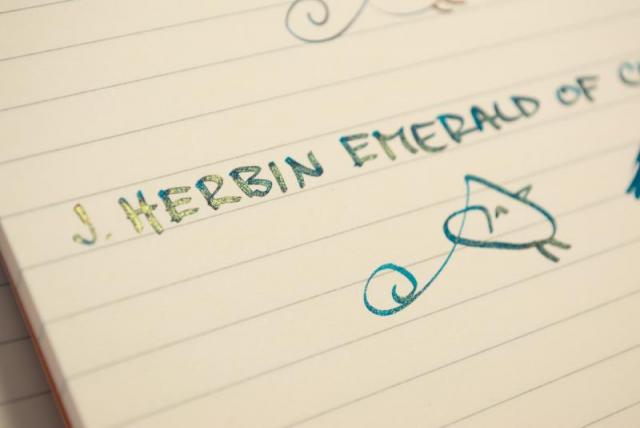 J. HERBIN EMERALD OF